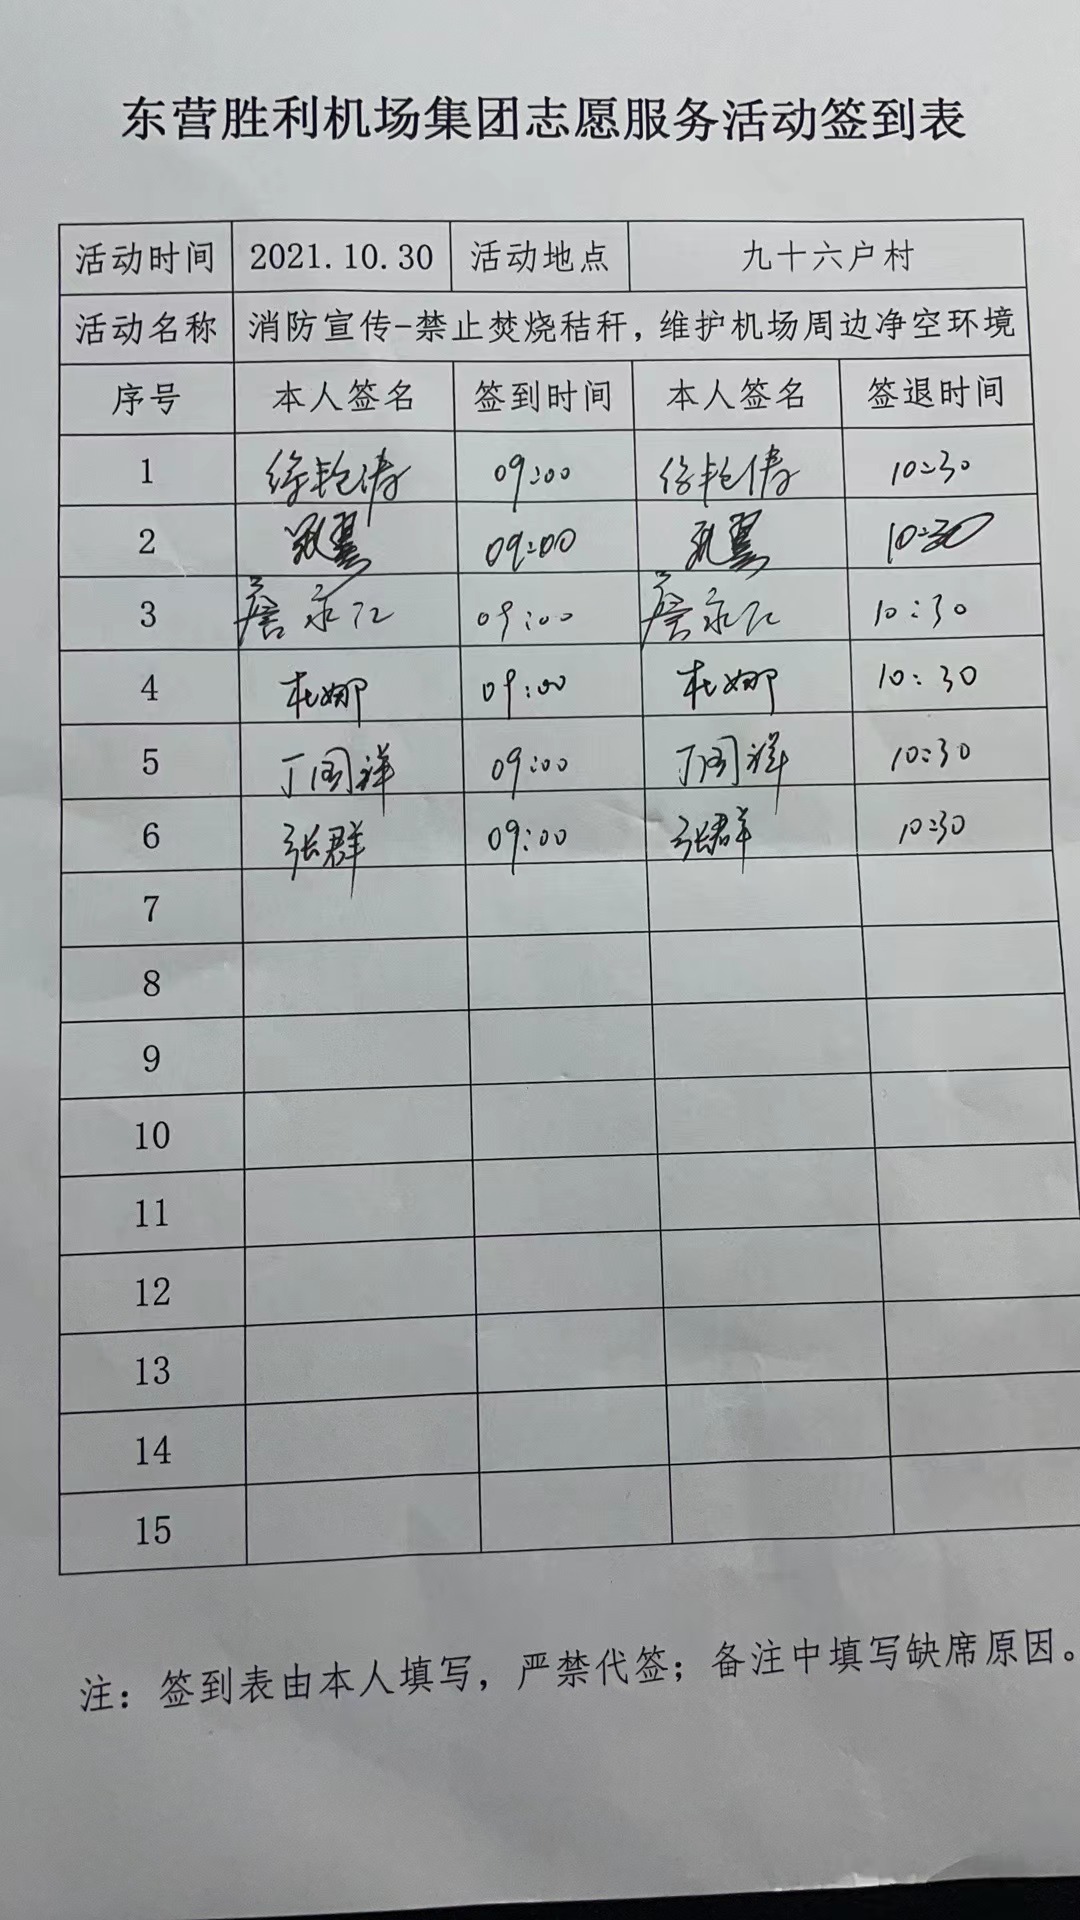 东营胜利机场集团志愿服务活动签到表
活动时间 2021.10.30 活动地点 九十六户村
活动名称 消防宣传-禁止焚烧秸秆，维护机场周边净空环境
序号 本人签名 签到时间 本人签名 签退时间
1 徐艳倩 09:00 徐艳倩 10:30
2 09:00 10:30
3 詹永 09:00 詹永 10:30
4 杜娜 09:00 杜娜 10:30
5 丁国祥 09:00 丁国祥 10:30
6 张群 09:00 张群 10:30
7
8
9
10
11
12
13
14
15
注：签到表由本人填写，严禁代签；备注中填写缺席原因。